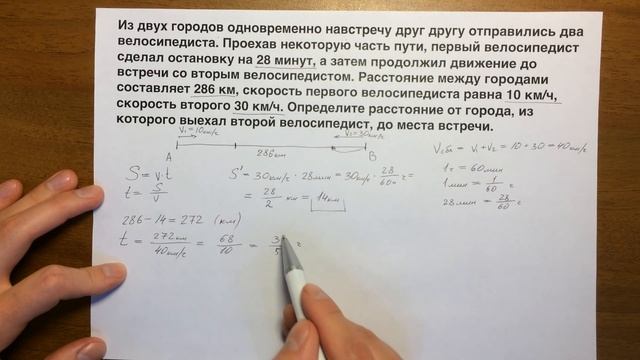 Из двух городов одновременно навстречу друг другу отправились два
велосипедиста. Проехав некоторую часть пути, первый велосипедист
сделал остановку на 28 минут, а затем продолжил движение до
встречи со вторым велосипедистом. Расстояние между городами
составляет 286 км, скорость первого велосипедиста равна 10 км/ч,
скорость второго 30 км/ч. Определите расстояние от города, из
которого выехал второй велосипедист, до места встречи.
V₁=10км/ч V₂=30км/ч
A 286км B
Vсбл = V₁ + V₂ = 10 + 30 = 40км/ч
S = V · t
t = S/V
S' = 30км/ч · 28мин = 30км/ч · 28/60 ч =
= 28/2 км = 14км
1ч = 60мин
1мин = 1/60 ч
28мин = 28/60 ч
286 - 14 = 272 (км)
t = 272км/40км/ч = 68/10 = ч